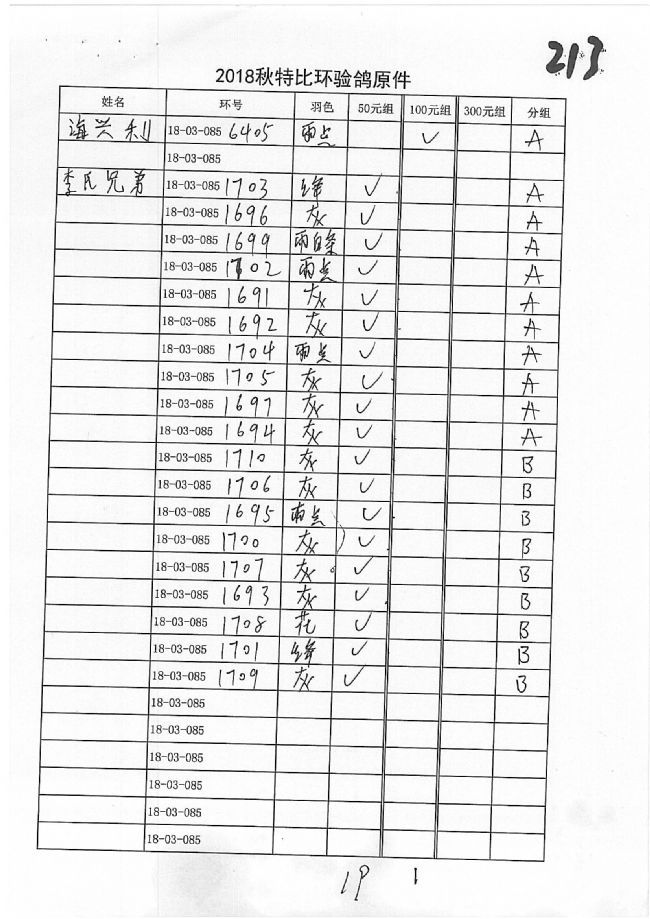 213
2018秋特比环验鸽原件
姓名 环号 羽色 50元组 100元组 300元组 分组
海兴利 18-03-085 6405 雨点 ✓ A
18-03-085
李氏兄弟 18-03-085 1703 绛 ✓ A
18-03-085 1696 灰 ✓ A
18-03-085 1699 雨白条 ✓ A
18-03-085 1702 雨点 ✓ A
18-03-085 1691 灰 ✓ A
18-03-085 1692 灰 ✓ A
18-03-085 1704 雨点 ✓ A
18-03-085 1705 灰 ✓ A
18-03-085 1697 灰 ✓ A
18-03-085 1694 灰 ✓ A
18-03-085 1710 灰 ✓ B
18-03-085 1706 灰 ✓ B
18-03-085 1695 雨点 ✓ B
18-03-085 1700 灰 ✓ B
18-03-085 1707 灰 ✓ B
18-03-085 1693 灰 ✓ B
18-03-085 1708 花 ✓ B
18-03-085 1701 绛 ✓ B
18-03-085 1709 灰 ✓ B
18-03-085
18-03-085
18-03-085
18-03-085
18-03-085
18-03-085
19 1